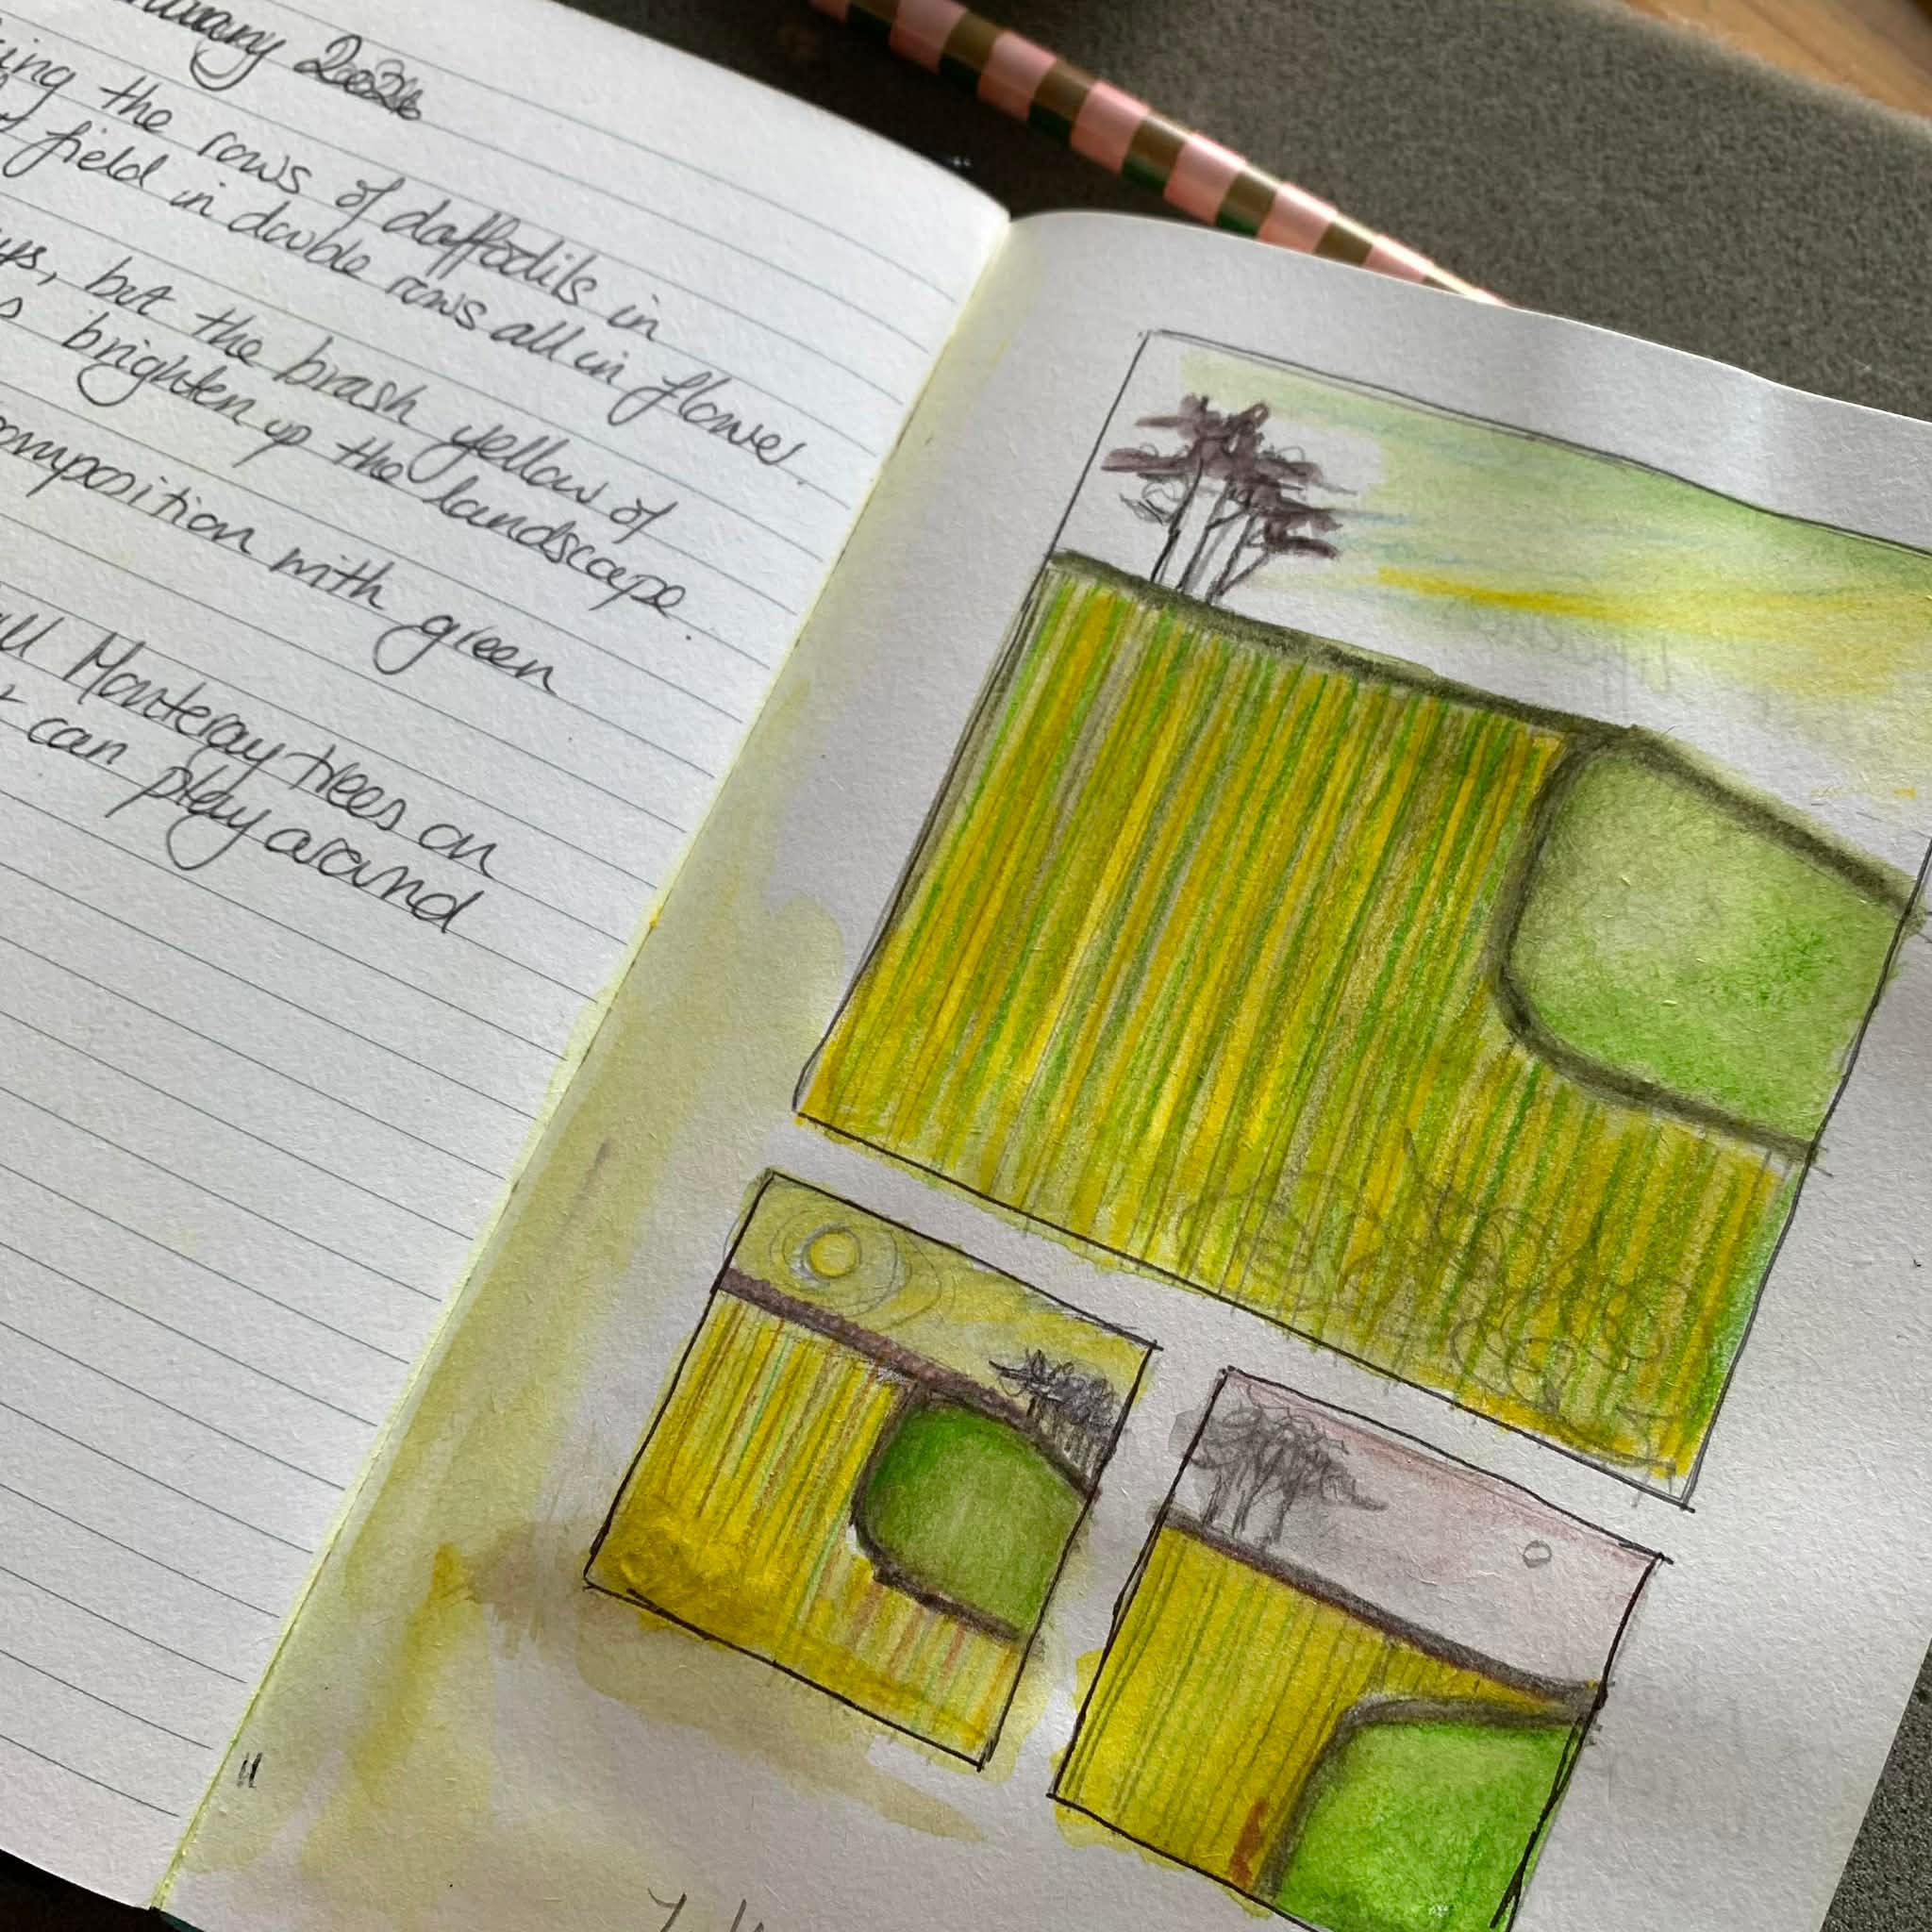 2026
the rows of daffodils in
field in double rows all in flower.
but the brash yellow of
brighten up the landscape.
composition with green
Monteray trees on
can play around
11